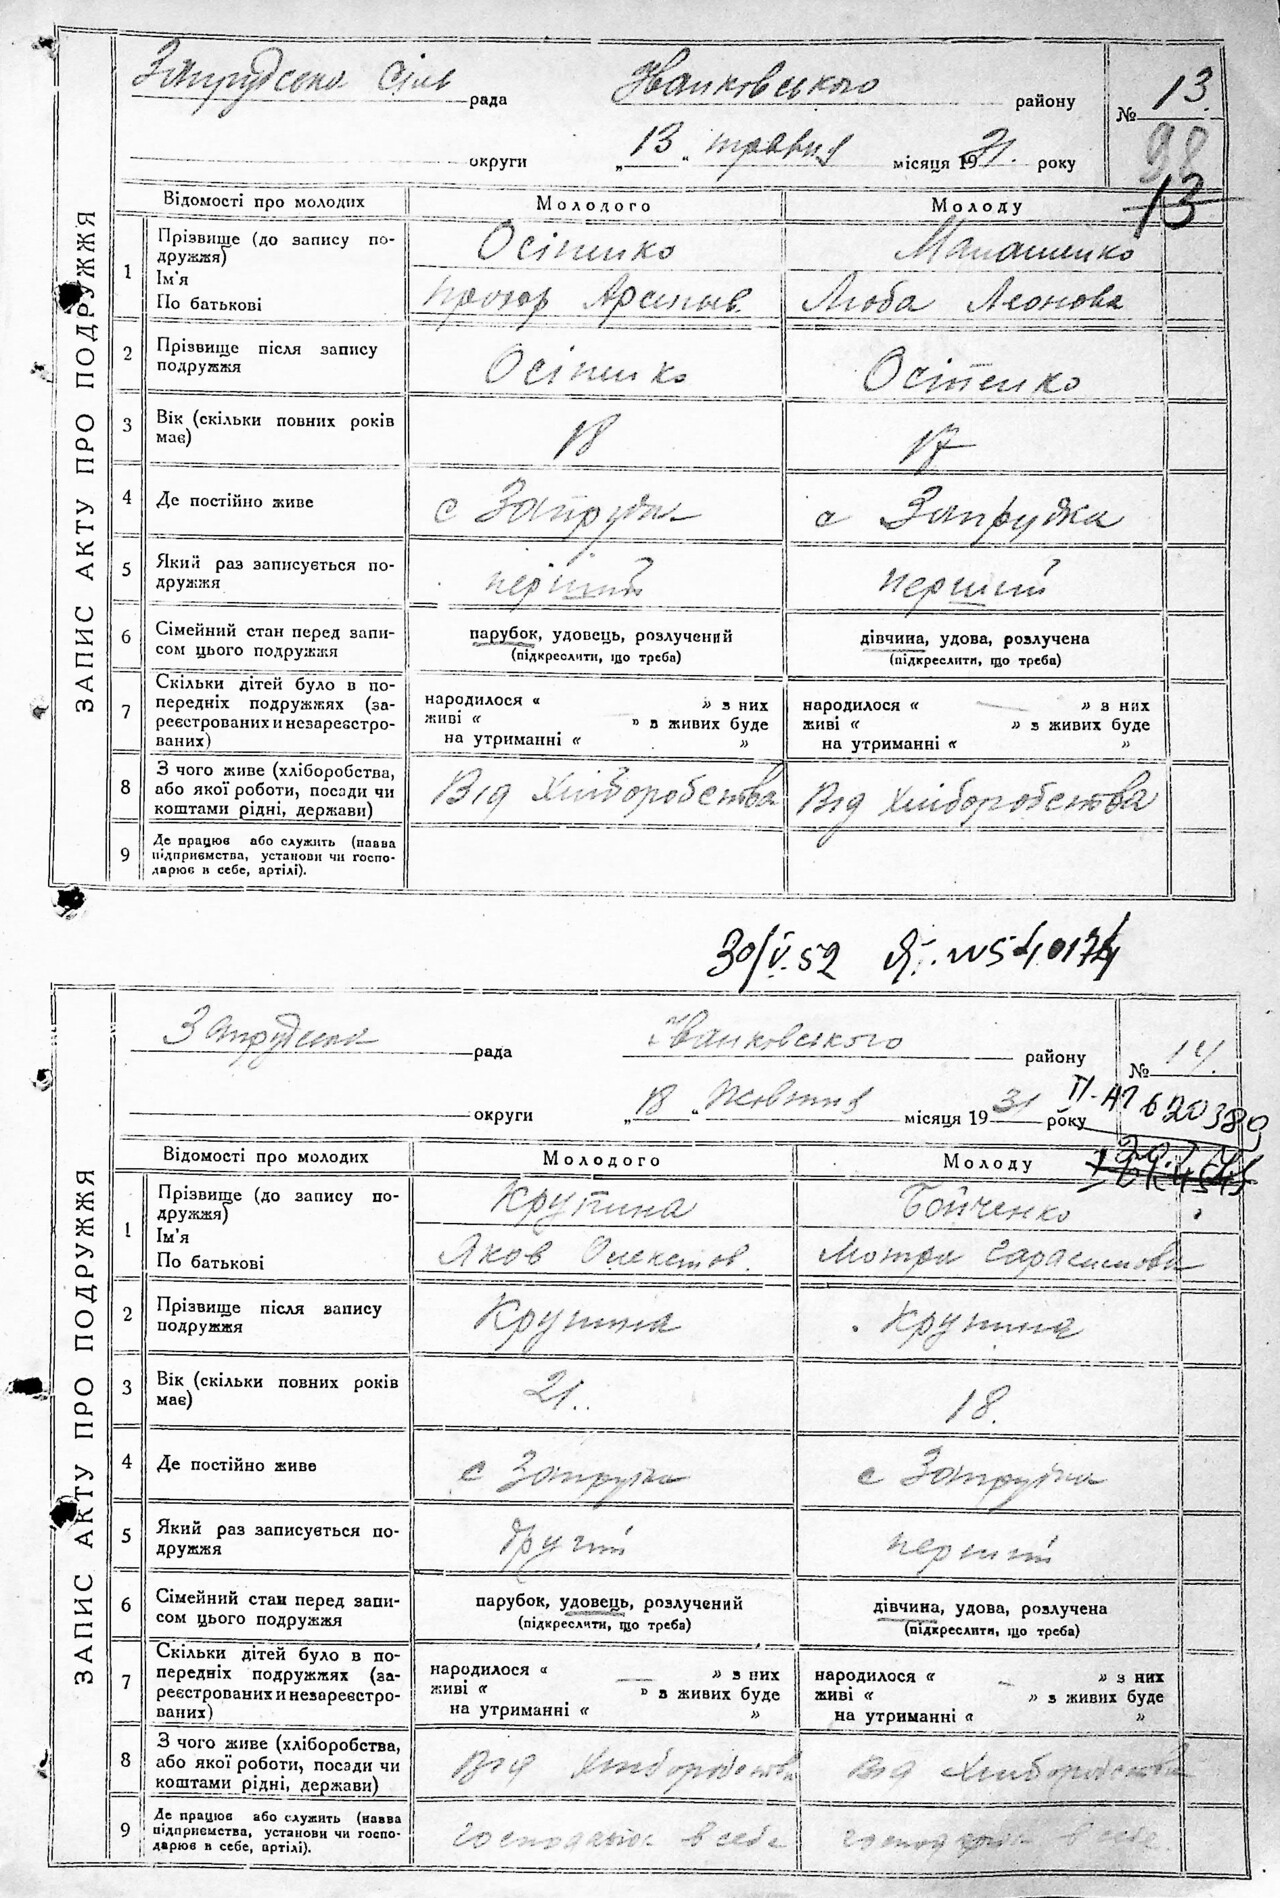 Запрудська сіль рада Іванковського району № 13.
округи „13" травня місяця 1931. року
98
13
ЗАПИС АКТУ ПРО ПОДРУЖЖЯ
Відомості про молодих Молодого Молоду
1 Прізвище (до запису по- Осіпенко
дружжя)
Ім'я
По батькові Арсеньв. Люба Леонова
2 Прізвище після запису Осіпенко Осіпенко
подружжя
3 Вік (скільки повних років 18 17
має)
4 Де постійно живе с Запрудка с Запрудка
5 Який раз записується по- перший перший
дружжя
6 Сімейний стан перед запи- парубок, удовець, розлучений дівчина, удова, розлучена
сом цього подружжя (підкреслити, що треба) (підкреслити, що треба)
7 Скільки дітей було в по- народилося « » з них народилося « — » з них
передніх подружжях (за- живі « » з живих буде живі « » з живих буде
реєстрованих и незареєстро- на утриманні « » на утриманні « »
ваних)
8 З чого живе (хліборобства, Від Хліборобства Від Хліборобства
або якої роботи, посади чи
коштами рідні, держави)
9 Де працює або служить (назва
підприємства, установи чи госпо-
дарює в себе, артілі).
30/V.52 540174
Запрудська рада Іванковського району № 14.
округи „18" Жовтня місяця 1931 року
620389
ЗАПИС АКТУ ПРО ПОДРУЖЖЯ
Відомості про молодих Молодого Молоду
1 Прізвище (до запису по- Крупина Бойченко
дружжя)
Ім'я
По батькові Яков Олексіюв. Мотря Гарасимова
2 Прізвище після запису Крупина Крупина
подружжя
3 Вік (скільки повних років 21. 18.
має)
4 Де постійно живе с Запрудка с Запрудка
5 Який раз записується по- другий перший
дружжя
6 Сімейний стан перед запи- парубок, удовець, розлучений дівчина, удова, розлучена
сом цього подружжя (підкреслити, що треба) (підкреслити, що треба)
7 Скільки дітей було в по- народилося « — » з них народилося « — » з них
передніх подружжях (за- живі « » з живих буде живі « » з живих буде
реєстрованих и незареєстро- на утриманні « » на утриманні « »
ваних)
8 З чого живе (хліборобства, Від Хліборобства Від Хліборобства
або якої роботи, посади чи
коштами рідні, держави)
9 Де працює або служить (назва господарює в себе господарює в себе
підприємства, установи чи госпо-
дарює в себе, артілі).